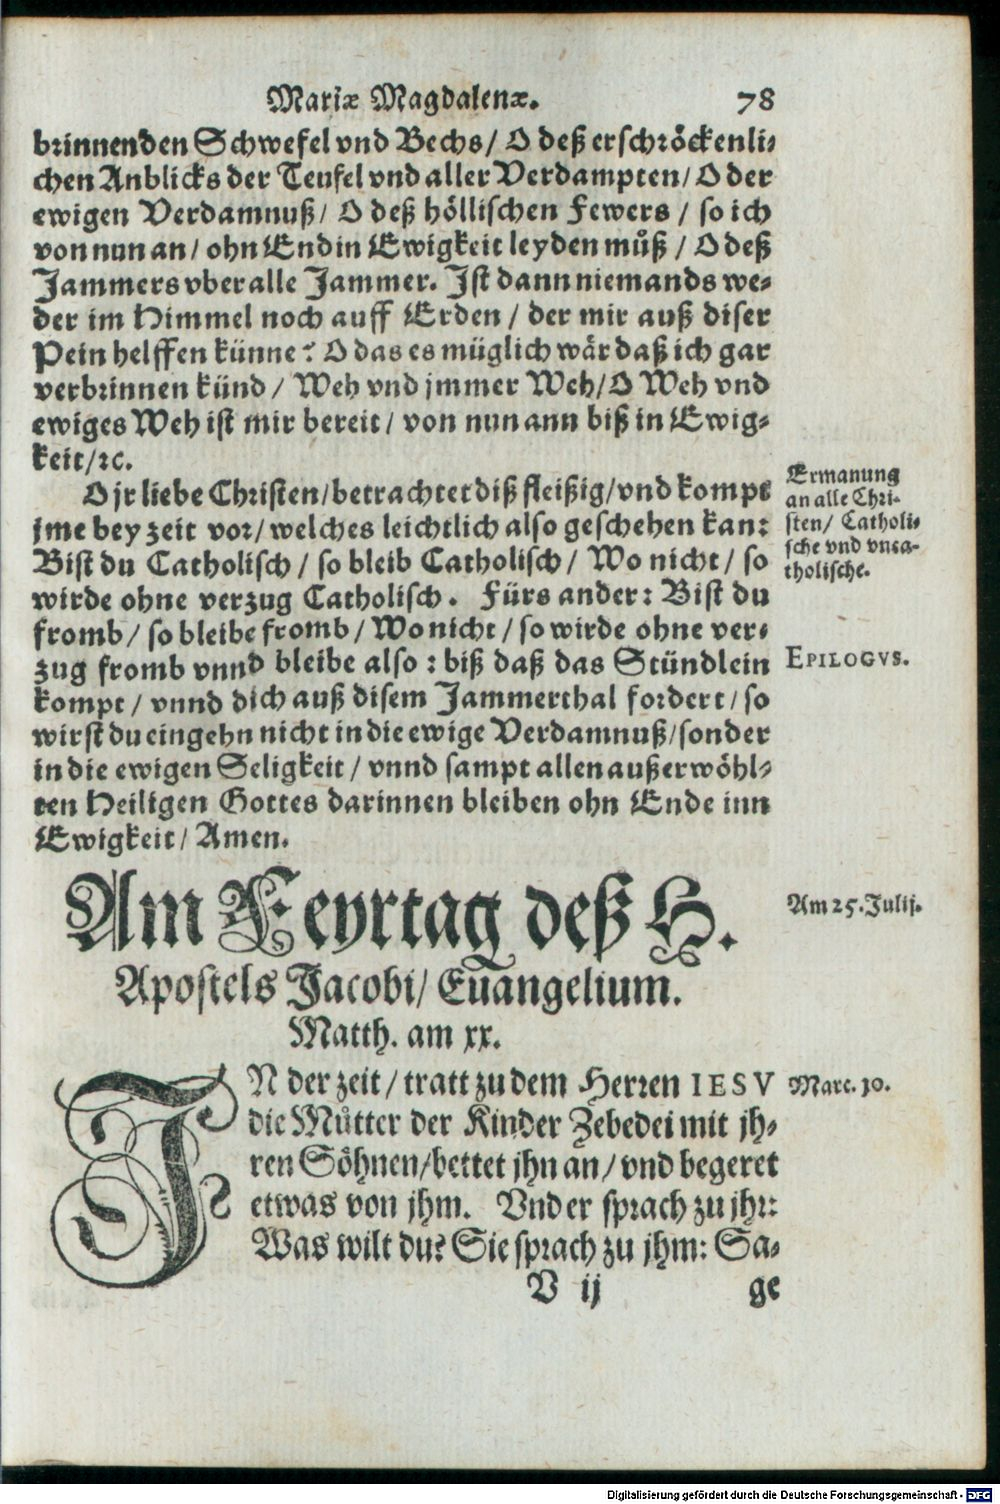 Mariæ Magdalenæ. 78
brinnenden Schwefel vnd Bechs/ O deß erschröckenli-
chen Anblicks der Teufel vnd aller Verdampten/ O der
ewigen Verdamnuß/ O deß höllischen Fewers / so ich
von nun an/ ohn End in Ewigkeit leyden müß / O deß
Jammers vber alle Jammer. Ist dann niemands we-
der im Himmel noch auff Erden / der mir auß diser
Pein helffen künne? O das es müglich wär daß ich gar
verbrinnen künd / Weh vnd jmmer Weh/ O Weh vnd
ewiges Weh ist mir bereit/ von nun ann biß in Ewig-
keit/ꝛc.
O jr liebe Christen/betrachtet diß fleißig/vnd kompt
jme bey zeit vor/ welches leichtlich also geschehen kan:
Bist du Catholisch / so bleib Catholisch/ Wo nicht/ so
wirde ohne verzug Catholisch. Fürs ander: Bist du
fromb/ so bleibe fromb/ Wo nicht/ so wirde ohne ver-
zug fromb vnnd bleibe also: biß daß das Stündlein
kompt/ vnnd dich auß disem Jammerthal fordert/ so
wirst du eingehn nicht in die ewige Verdamnuß/sonder
in die ewigen Seligkeit / vnnd sampt allen außerwöhl-
ten Heiligen Gottes darinnen bleiben ohn Ende inn
Ewigkeit/ Amen.
Ermanung
an alle Chri-
sten/ Catholi-
sche vnd vnca-
tholische.
EPILOGVS.
Am Feyrtag deß H.
Apostels Jacobi/ Euangelium.
Matth. am xx.
Am 25. Julij.
IN der zeit/ tratt zu dem Herren IESV
die Mütter der Kinder Zebedei mit jh-
ren Söhnen/bettet jhn an/ vnd begeret
etwas von jhm. Vnd er sprach zu jhr:
Was wilt du? Sie sprach zu jhm: Sa-
Marc. 10.
V ij ge
Digitalisierung gefördert durch die Deutsche Forschungsgemeinschaft - DFG